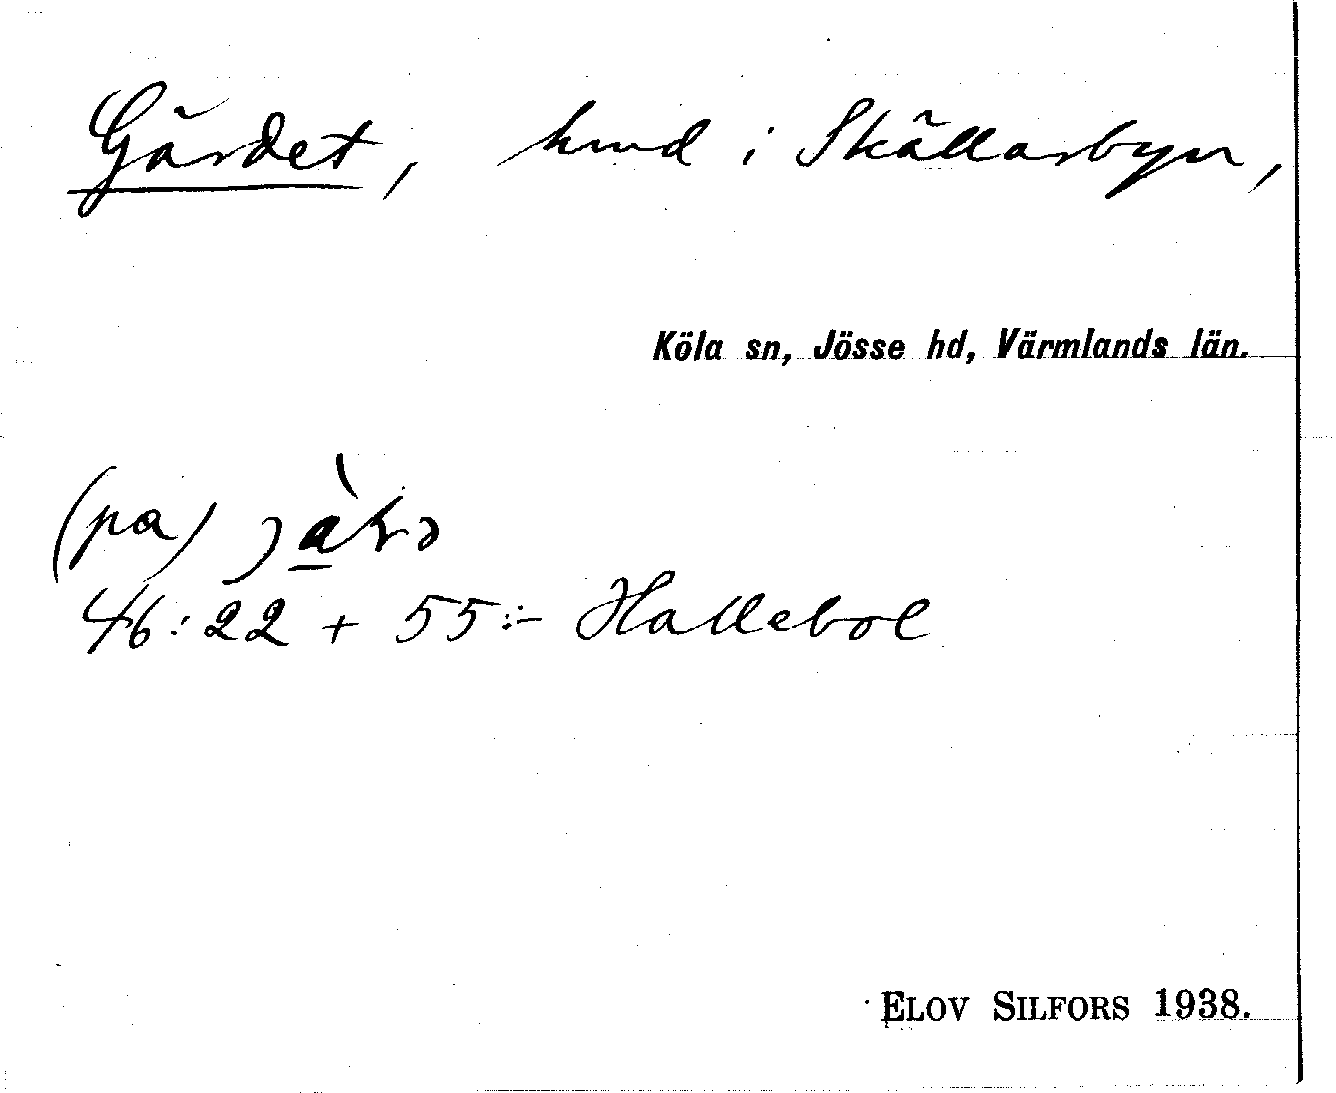 Gärdet, hmd i Skällarbyn,
Köla sn, Jösse hd, Värmlands län.
(pa)
46:22 + 55:- Hallebol
ELOV SILFORS 1938.